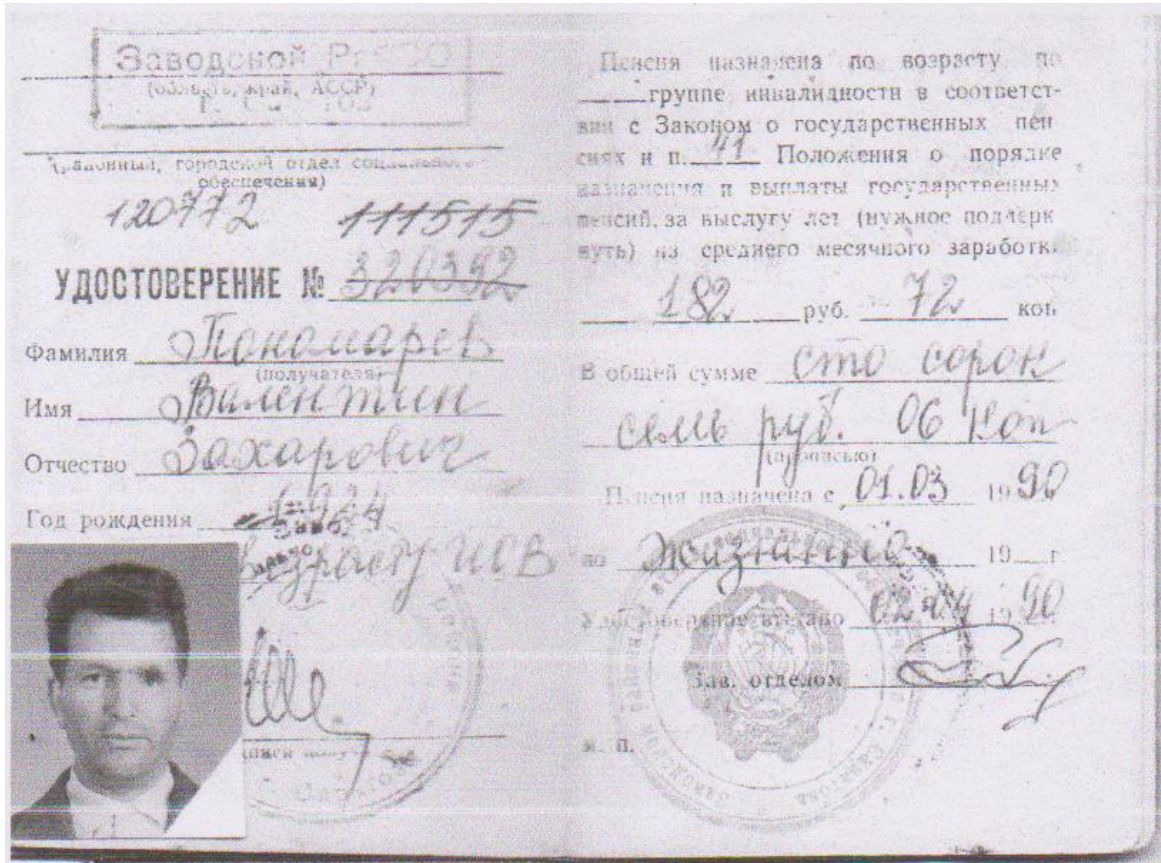 Заводской РОСО
(область, край, АССР)
(районный, городской отдел социального
обеспечения)
120772 111515
УДОСТОВЕРЕНИЕ № 320392
Фамилия Пономарев
(получателя)
Имя Валентин
Отчество Захарович
Год рождения 1924
возрасту ИОВ
г. Саратова
Пенсия назначена по возрасту по
группе инвалидности в соответст-
вии с Законом о государственных пен-
сиях и п. 41 Положения о порядке
назначения и выплаты государственных
пенсий, за выслугу лет (нужное подчерк
нуть) из среднего месячного заработка
182 руб. 72 коп
В общей сумме сто сорок
семь руб. 06 коп
(прописью)
Пенсия назначена с 01.03 1990
по Жизненно 19 г
Удостоверение выдано 02 1990
Зав. отделом
м. п.